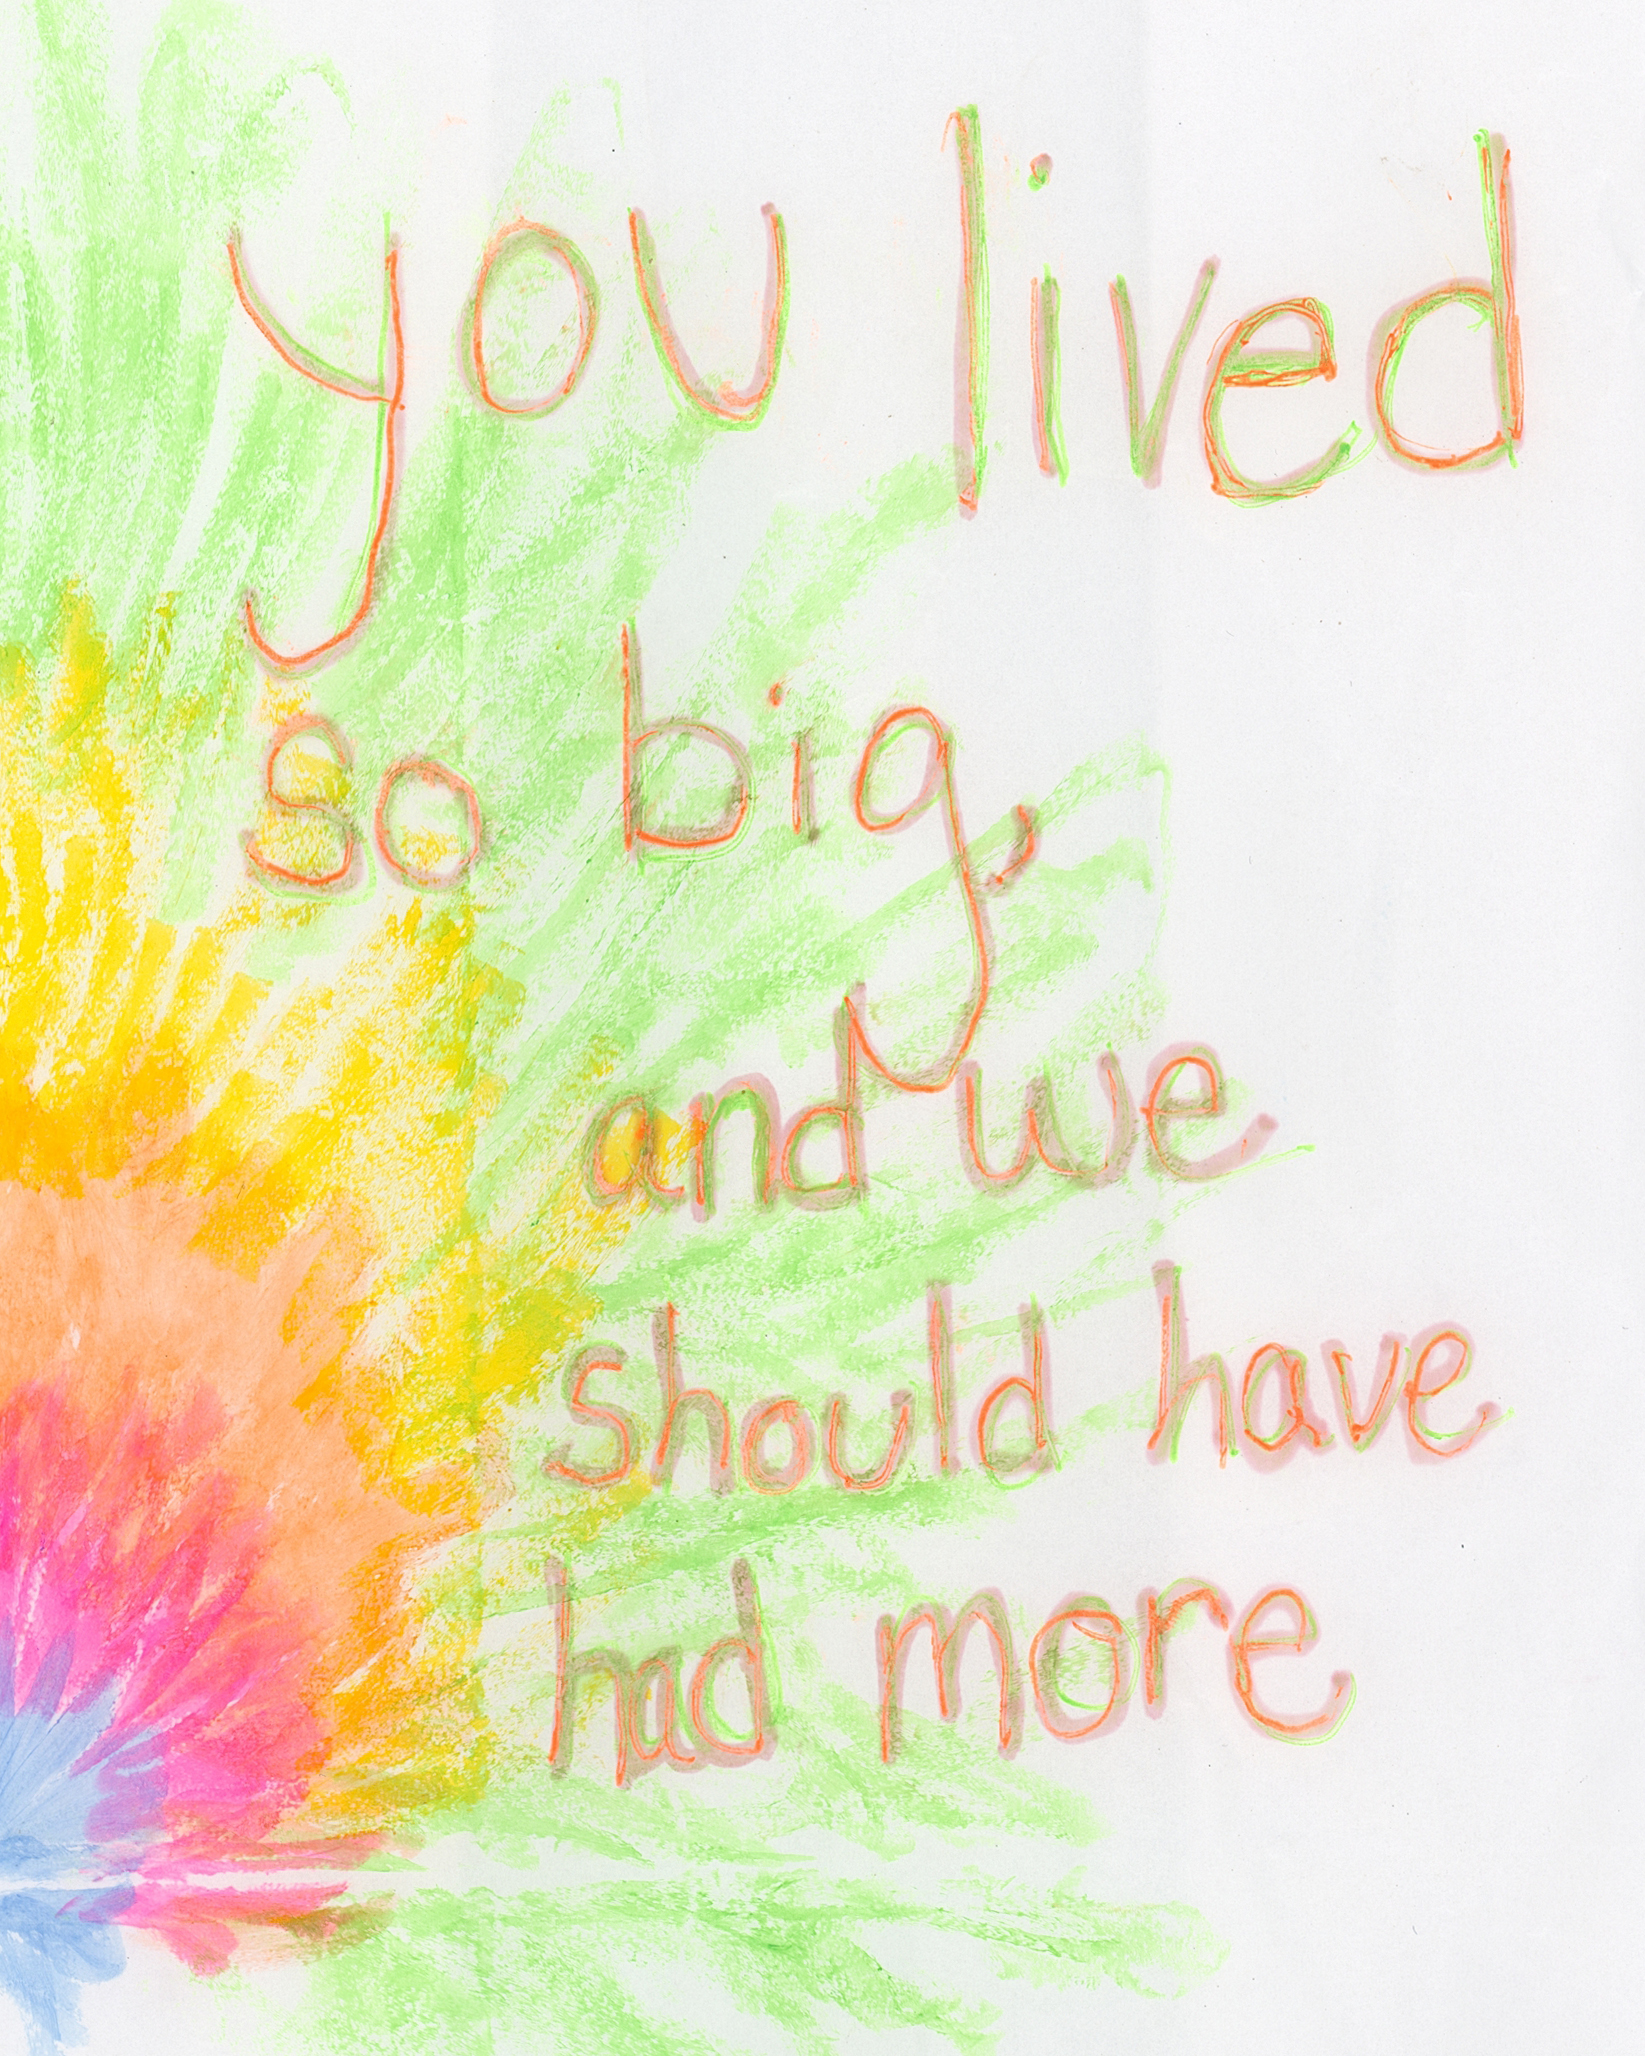 you lived
so big,
and we
should have
had more